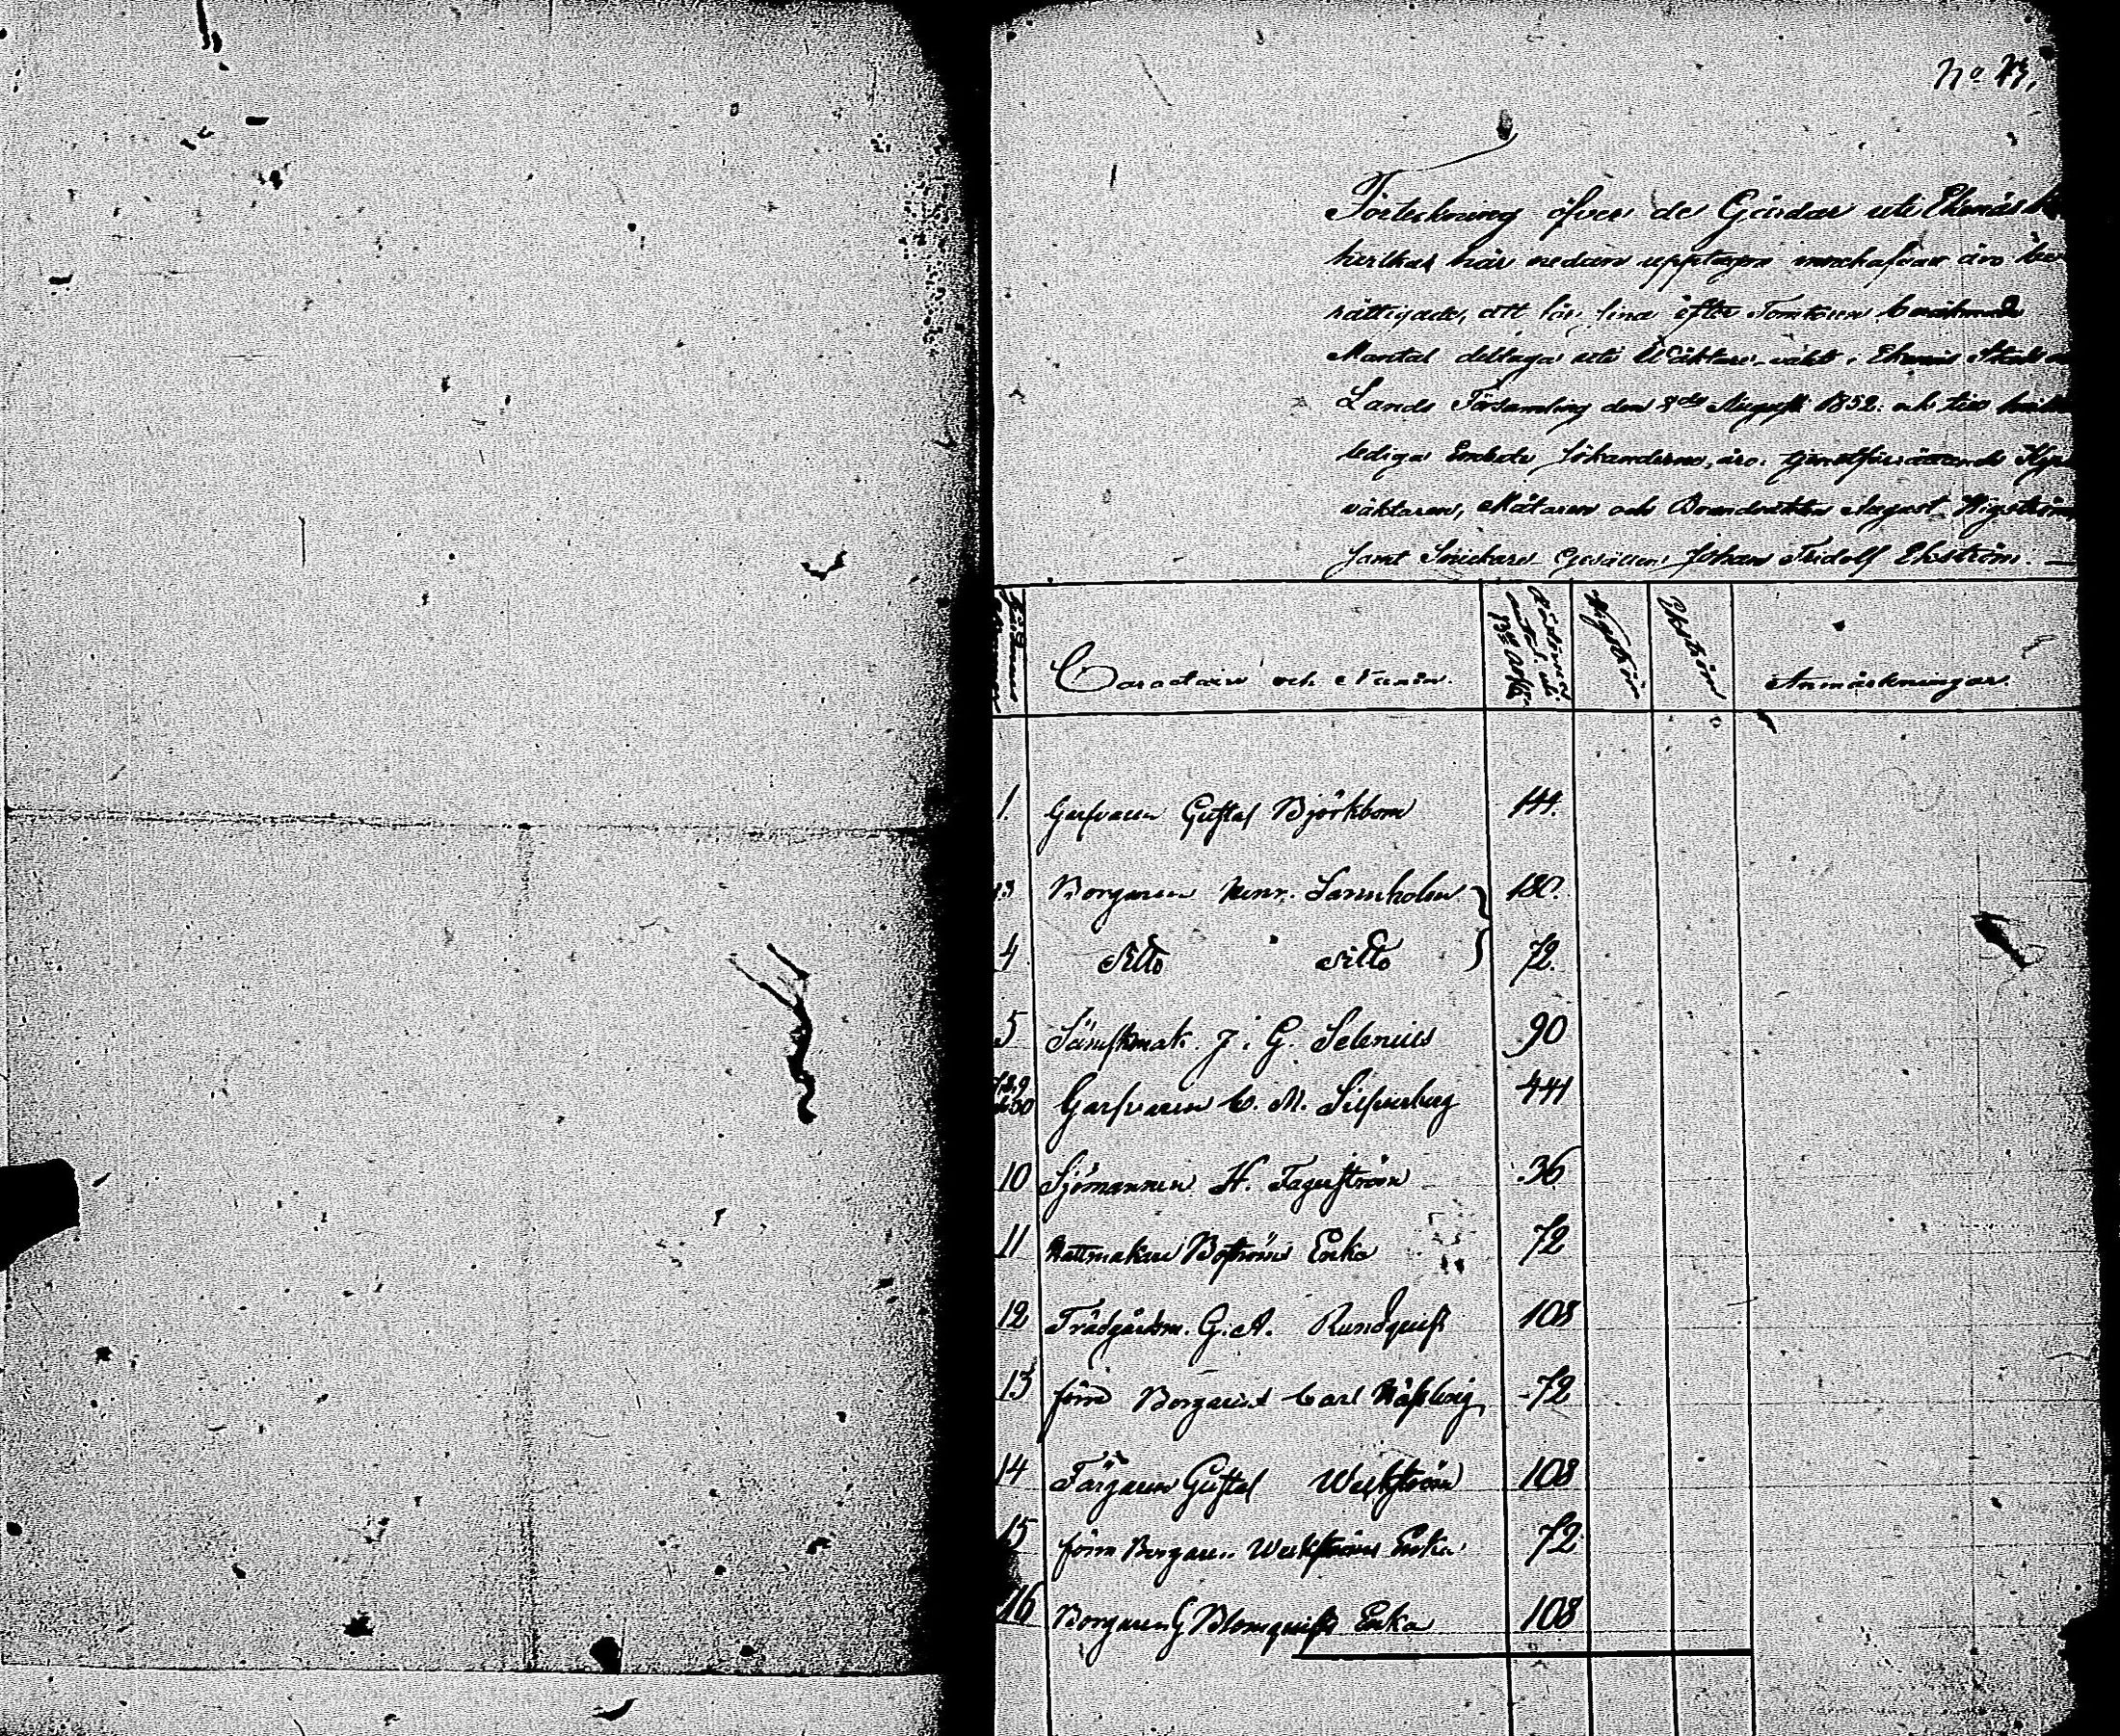 No
Förteckning öfver de Gårdar uti Ekenäs
hvilkas här nedan upptagne innehafvare äro be
rättigade, att för sina efter Tomtören beräknade
Mantal deltaga uti Wäktare- i Ekenäs Stads
Lands Församling den 8de August 1852. och till
lediga Embete Sökanderne, äro: tjenstförrättande
väktaren, Mätaren och Brandvakten August Wigström
samt Snickare Gesällen Johan Fridolf Ekström. —
Caracterer och Namn. Wigström Ekström Anmärkningar.
1. Garfvaren Gustaf Björkbom 144.
3 Borgaren Henr. 180.
4 ditto ditto 72.
5 Sämskmak. J. G. Selenius 90
Garfvaren C. M. Silfverberg 441
10 Sjömannen H. Fagerström 36
11 Hattmakare Boströms Enka 72
12 Trädgårdsm. G. A. Rundquist 108
13 förre Borgaren Carl 72
14 Färgaren Gustaf Weckström 108
15 förre Borgaren Weckströms Enka 72
16 Borgaren G Blomquists Enka 108